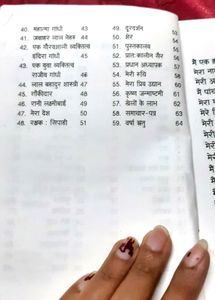 40. महात्मा गांधी 43
41. जवाहर लाल नेहरू 44
42. एक गौरवशाली व्यक्तित्व
इंदिरा गांधी 45
43. एक युवा व्यक्तित्व
राजीव गांधी 46
44. लाल बहादुर शास्त्री 47
45. चौकीदार 48
46. रानी लक्ष्मीबाई 49
47. मेरा देश 50
48. रक्षक : सिपाही 51
49. दूरदर्शन
50. शेर 53
51. पुस्तकालय
52. प्रातः कालीन सैर 55
53. प्रधान अध्यापक 57
54. मेरी रुचि 59
55. मेरा प्रिय उद्यान 60
56. कृष्ण जन्माष्टमी 61
57. खेलों के लाभ 62
58. समाचार-पत्र 63
59. वर्षा ऋतु 64
मैं एक
मेरा ना
मेरी अ
मैं पां
मेरे
मेरी
मेरे
मेरी
मैं
मैं